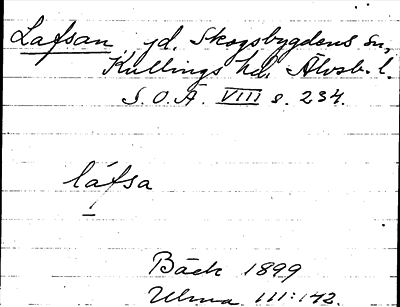 Lafsan, jd. Skogsbygdens sn,
Kullings hd. Älvsb. l.
S. O. Ä. VIII s. 234.
láfsa
Bäck 1899
Ulma III:142.